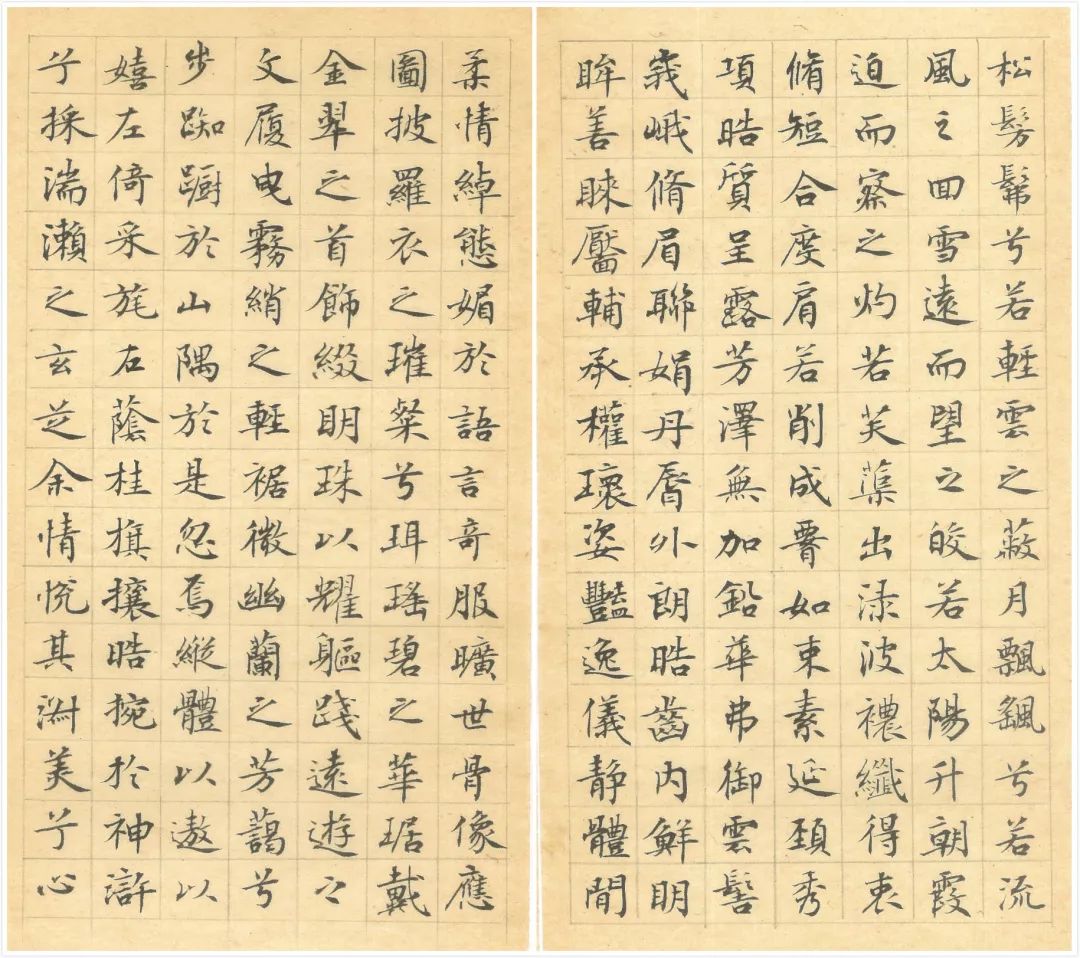 松髣髴兮若輕雲之蔽月飄颻兮若流
風之回雪遠而望之皎若太陽升朝霞
迫而察之灼若芙蕖出渌波襛纖得衷
脩短合度肩若削成䙅如束素延頸秀
項皓質呈露芳澤無加鉛華弗御雲髻
峩峨脩眉聯娟丹脣外朗皓齒內鮮明
眸善睞靨輔承權瓌姿豔逸儀静體閒
柔情綽態媚於語言奇服曠世骨像應
圖披羅衣之璀粲兮珥瑤碧之華琚戴
金翠之首飾綴明珠以耀軀踐遠遊之
文履曳霧綃之輕裾微幽蘭之芳藹兮
步踟躕於山隅於是忽焉縱體以遨以
嬉左倚采旄右蔭桂旗攘皓捥於神滸
兮採湍瀨之玄芝余情悅其淑美兮心